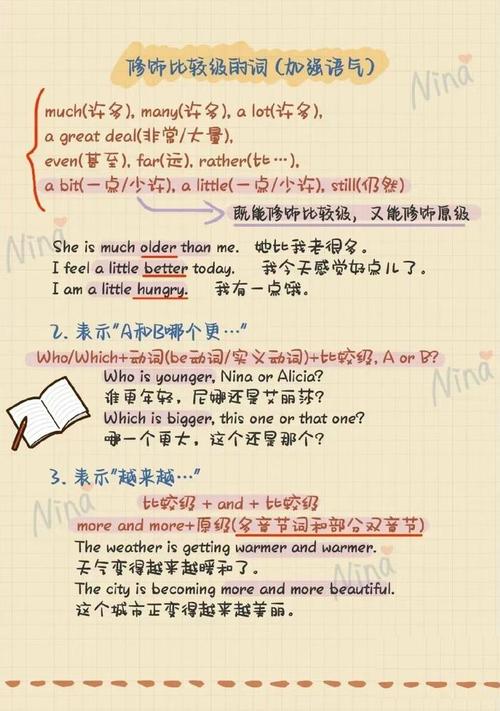 修饰比较级的词(加强语气)
Nina
much(许多), many(许多), a lot(许多),
a great deal(非常/大量),
even(甚至), far(远), rather(比…),
a bit(一点/少许), a little(一点/少许), still(仍然)
既能修饰比较级, 又能修饰原级
Nina
She is much older than me. 她比我老很多。
I feel a little better today. 我今天感觉好点儿了。
I am a little hungry. 我有一点饿。
2. 表示"A和B哪个更…"
Who/Which+动词(be动词/实义动词)+比较级, A or B?
Who is younger, Nina or Alicia?
谁更年轻, 尼娜还是艾丽莎?
Nina
Which is bigger, this one or that one?
哪一个更大, 这个还是那个?
3. 表示"越来越…"
Nina
比较级 + and + 比较级
more and more+原级(多音节词和部分双音节)
The weather is getting warmer and warmer.
天气变得越来越暖和了。
Nina
The city is becoming more and more beautiful.
这个城市正变得越来越美丽。